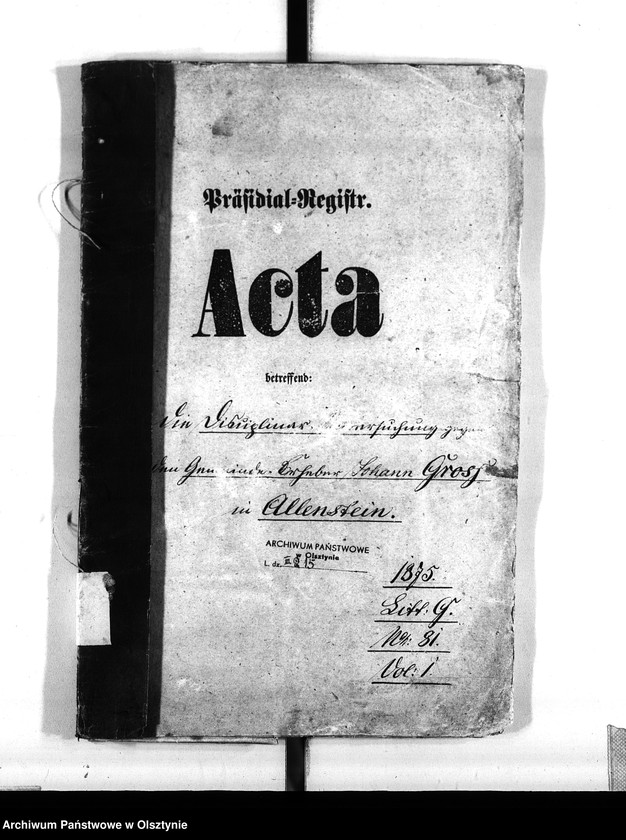 Präsidial-Registr.
Acta
betreffend:
Die Disciplinar gegen
den Erheber Johann Gross
in Allenstein.
ARCHIWUM PAŃSTWOWE
w Olsztynie
L. dz. 15
1875.
Litt: G.
No: 31.
Vol: 1.
Archiwum Państwowe w Olsztynie